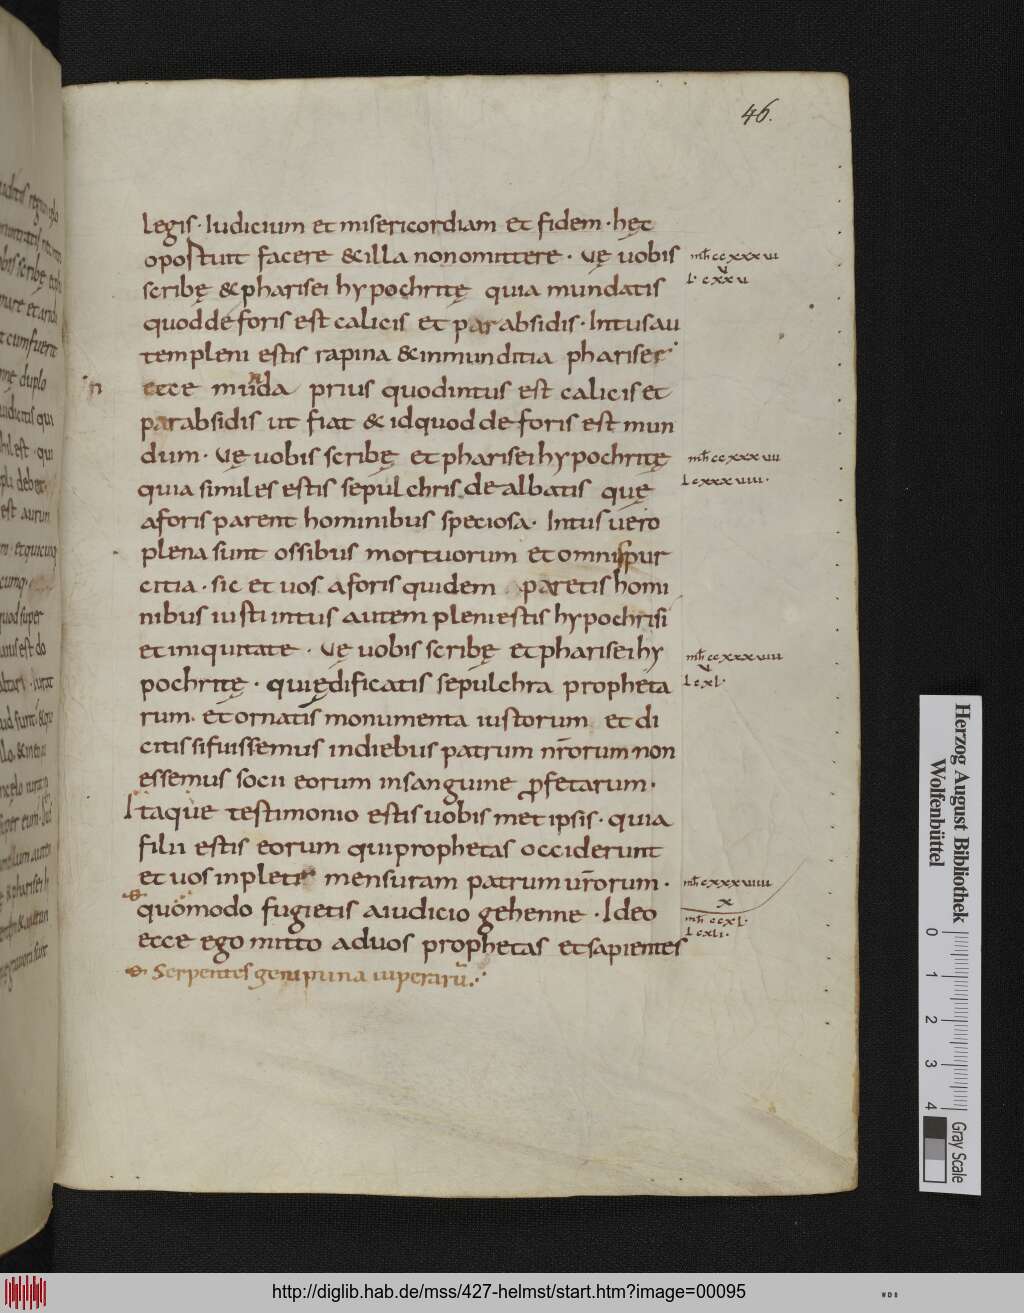 46.
legis · Iudicium et misericordiam et fidem · hęc
oportuit facere & illa non omittere · Vę uobis
mt̄h ccxxxvii
l · cxxxv
scribę & pharisei hypochritę quia mundatis
quod de foris est calicis et parabsidis · Intus au
tem pleni estis rapina & inmunditia pharisee
cece munda prius quod intus est calicis et
n
parabsidis ut fiat & id quod de foris est mun
dum · Vę uobis scribę et pharisei hypochritę
mt̄h ccxxxviii
l cxxxviiii ·
quia similes estis sepulchris dealbatis quę
aforis parent hominibus speciosa · Intus uero
plena sunt ossibus mortuorum et omni spur
citia · sic et uos aforis quidem paretis homi
nibus iusti intus autem pleni estis hypochrisi
et iniquitate · Vę uobis scribę et pharisei hy
mt̄h ccxxxviiii
l cxl ·
pochritę · qui ędificatis sepulchra propheta
rum · et ornatis monumenta iustorum et di
citis si fuissemus in diebus patrum nr̄orum non
essemus socii eorum in sanguine ꝓfetarum ·
Itaque testimonio estis uobis met ipsis · quia
filii estis eorum qui prophetas occiderunt
et uos inplete mensuram patrum ur̄orum ·
quomodo fugietis a iudicio gehenne · Ideo
x
mt̄h ccxl ·
l cxli ·
ecce ego mitto ad uos prophetas et sapientes
Serpentes genimina uiperarū ·
Herzog August Bibliothek
Wolfenbüttel
0 1 2 3 4
Gray Scale
http://diglib.hab.de/mss/427-helmst/start.htm?image=00095